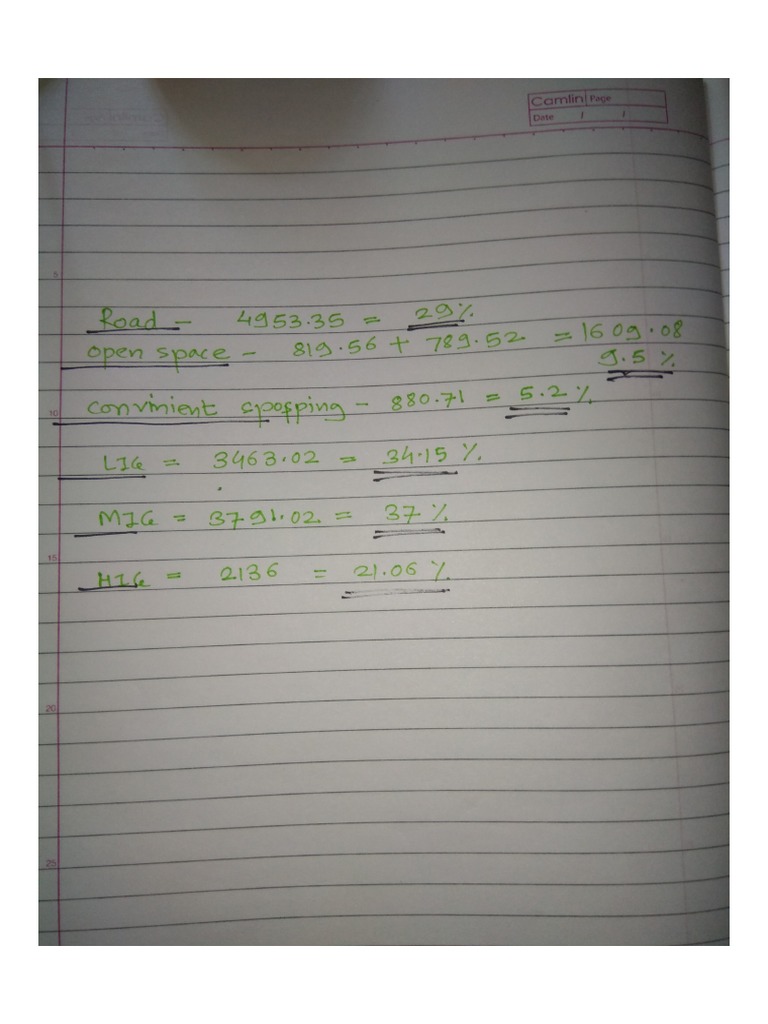 Camlin Page
Date / /
5
Road - 4953.35 = 29%
open space - 819.56 + 789.52 = 1609.08
9.5 %
10
convinient spopping - 880.71 = 5.2 %
LIG = 3463.02 = 34.15 %
MIG = 3791.02 = 37 %
15
HIG = 2136 = 21.06 %
20
25